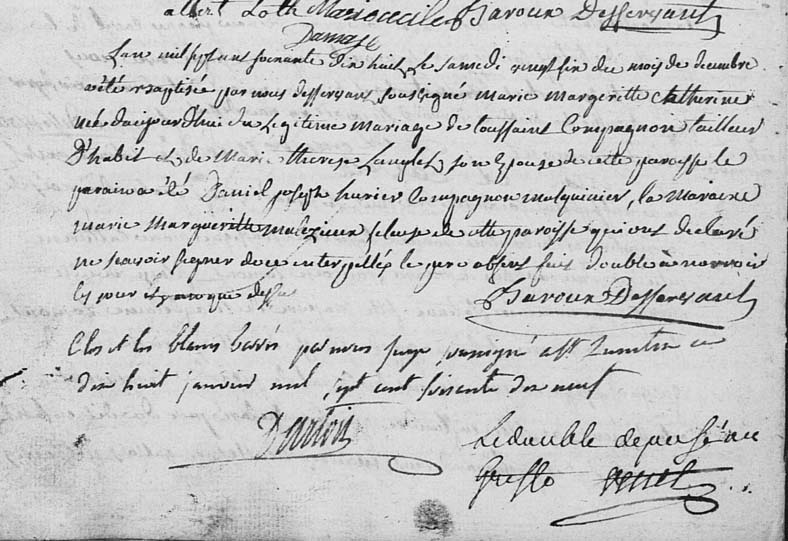 albert Loth Marie cecile J Baroux Desservant
Damase
L'an mil sept cent soixante dix huit, le samedi vingt six du mois de decembre
a été Baptisée par nous desservant soussigné marie margueritte Catherine
née d'aujourd'hui du Legitime Mariage de toussaint Compagnon tailleur
D'habit et de Marie therese Langlet son Epouse de cette paroisse le
parain a été Daniel joseph compagnon mulquinier, la Maraine
marie Margueritte de cette paroisse qui ont declaré
ne scavoir signer de ce interpellés le pere absent fait double
les jour et an que dessus J Baroux Desservant
Clos et les blancs barés par nous juge a St quentin ce
dix huit janvier mil sept cent soixante dix neuf
Dartois
Le double deposé au
Greffe